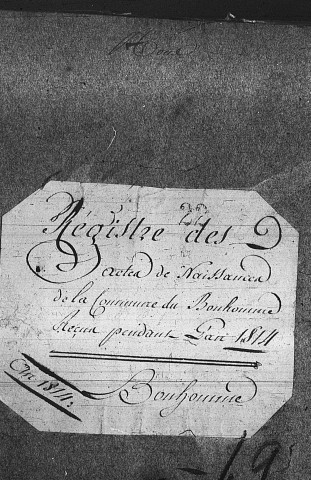 Régistre des
Actes de Naissances
de la Commune du Bonhomme
Reçus pendant L'an 1814
An 1814.
Bonhomme
19